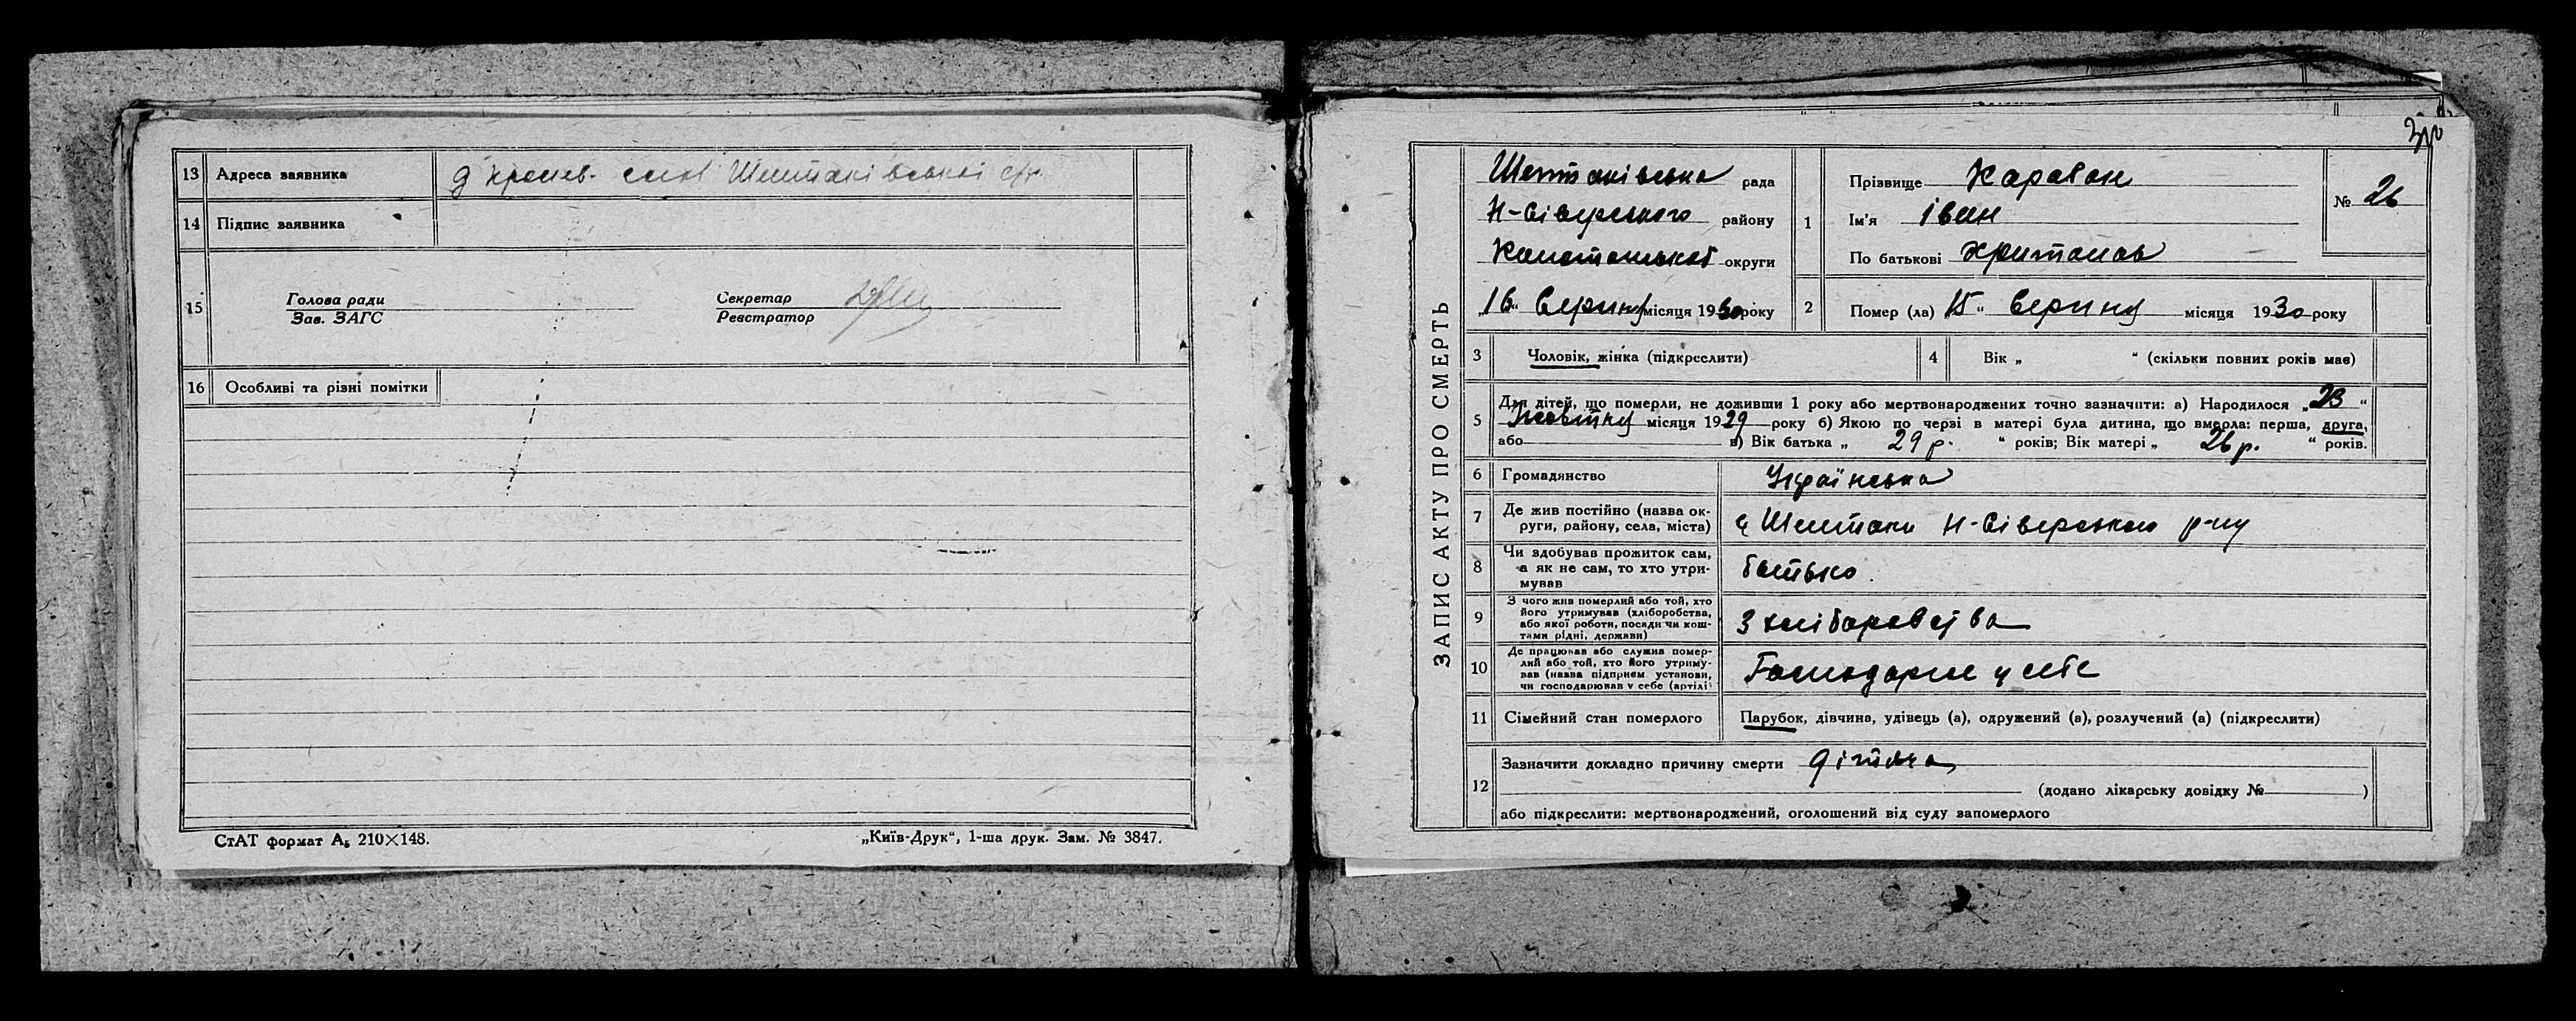 13 Адреса заявника Шептаківської с/р
14 Підпис заявника
15 Голова ради
Зав. ЗАГС
Секретар
Реєстратор
16 Особливі та різні помітки
СтАТ формат А₅ 210×148.
„Київ-Друк“, 1-ша друк. Зам. № 3847.
ЗАПИС АКТУ ПРО СМЕРТЬ
Шептаківська рада
Н-Сіверського району
округи
„16“ Вересня місяця 1930 року
1 Прізвище Караван
Ім'я Іван
По батькові
№ 26
2 Помер (ла) 15“ Вересня місяця 1930 року
3 Чоловік, жінка (підкреслити)
4 Вік „ “ (скільки повних років має)
5 Для дітей, що померли, не доживши 1 року або мертвонароджених точно зазначити: а) Народилося „23“
місяця 1929 року б) Якою по черзі в матері була дитина, що вмерла: перша, друга,
або в) Вік батька „ 29 р. “ років; Вік матері „ 26 р. “ років.
6 Громадянство Українська
7 Де жив постійно (назва ок-
руги, району, села, міста)
с Шептаки Н-Сіверського р-ну
8 Чи здобував прожиток сам,
а як не сам, то хто утри-
мував
батько
9 З чого жив померлий або той, хто
його утримував (хліборобства,
або якої роботи, посади чи кош-
тами рідні, держави)
З хліборобства
10 Де працював або служив помер-
лий або той, хто його утриму-
вав (назва підприєм. установи,
чи господарював у себе (артілі)
у себе
11 Сімейний стан померлого Парубок, дівчина, удівець (а), одружений (а), розлучений (а) (підкреслити)
12 Зазначити докладно причину смерти
(додано лікарську довідку № )
або підкреслити: мертвонароджений, оголошений від суду запомерлого